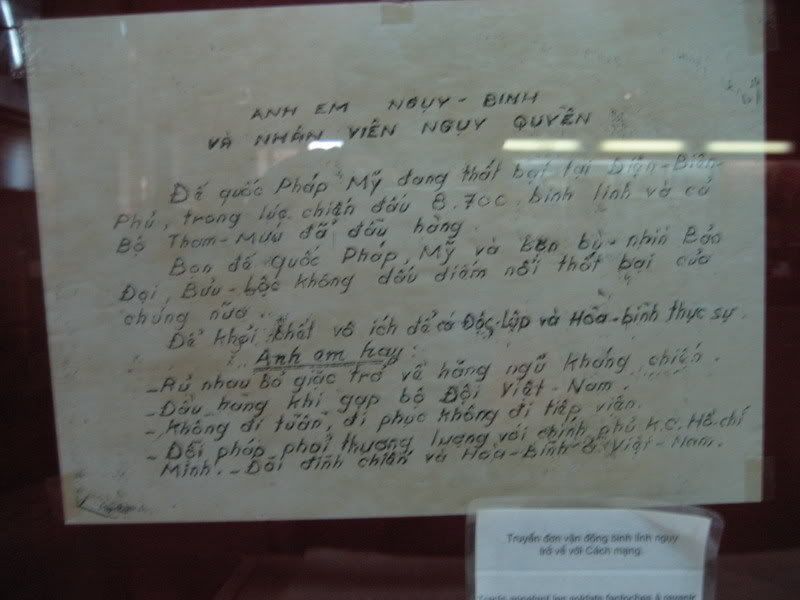 ANH EM NGỤY-BINH
VÀ NHÂN VIÊN NGỤY QUYỀN
Đế quốc Pháp Mỹ đang thất bại tại Điện-Biên-
Phủ, trong lúc chiến đấu 8.700 binh lính và cả
Bộ Tham-Mưu đã đầu hàng.
Bọn đế quốc Pháp, Mỹ và bọn bù-nhìn Bảo
Đại, Bửu-Lộc không dấu diếm nổi thất bại của
chúng nữa.
Để khỏi chết vô ích để có Độc-Lập và Hòa-bình thực sự.
Anh em hãy:
-Rủ nhau bỏ giặc trở về hàng ngũ kháng chiến.
-Đầu hàng khi gặp bộ Đội Việt-Nam.
-Không đi tuần, đi phục không đi tiếp viện.
-Đòi pháp phải thương lượng với chính phủ K.C. Hồ-chí
Minh.-Đòi đình chiến và Hòa-Bình ở Việt-Nam.
Truyền đơn vận động binh lính ngụy
trở về với Cách mạng.
appelant les soldats fantoches à revenir